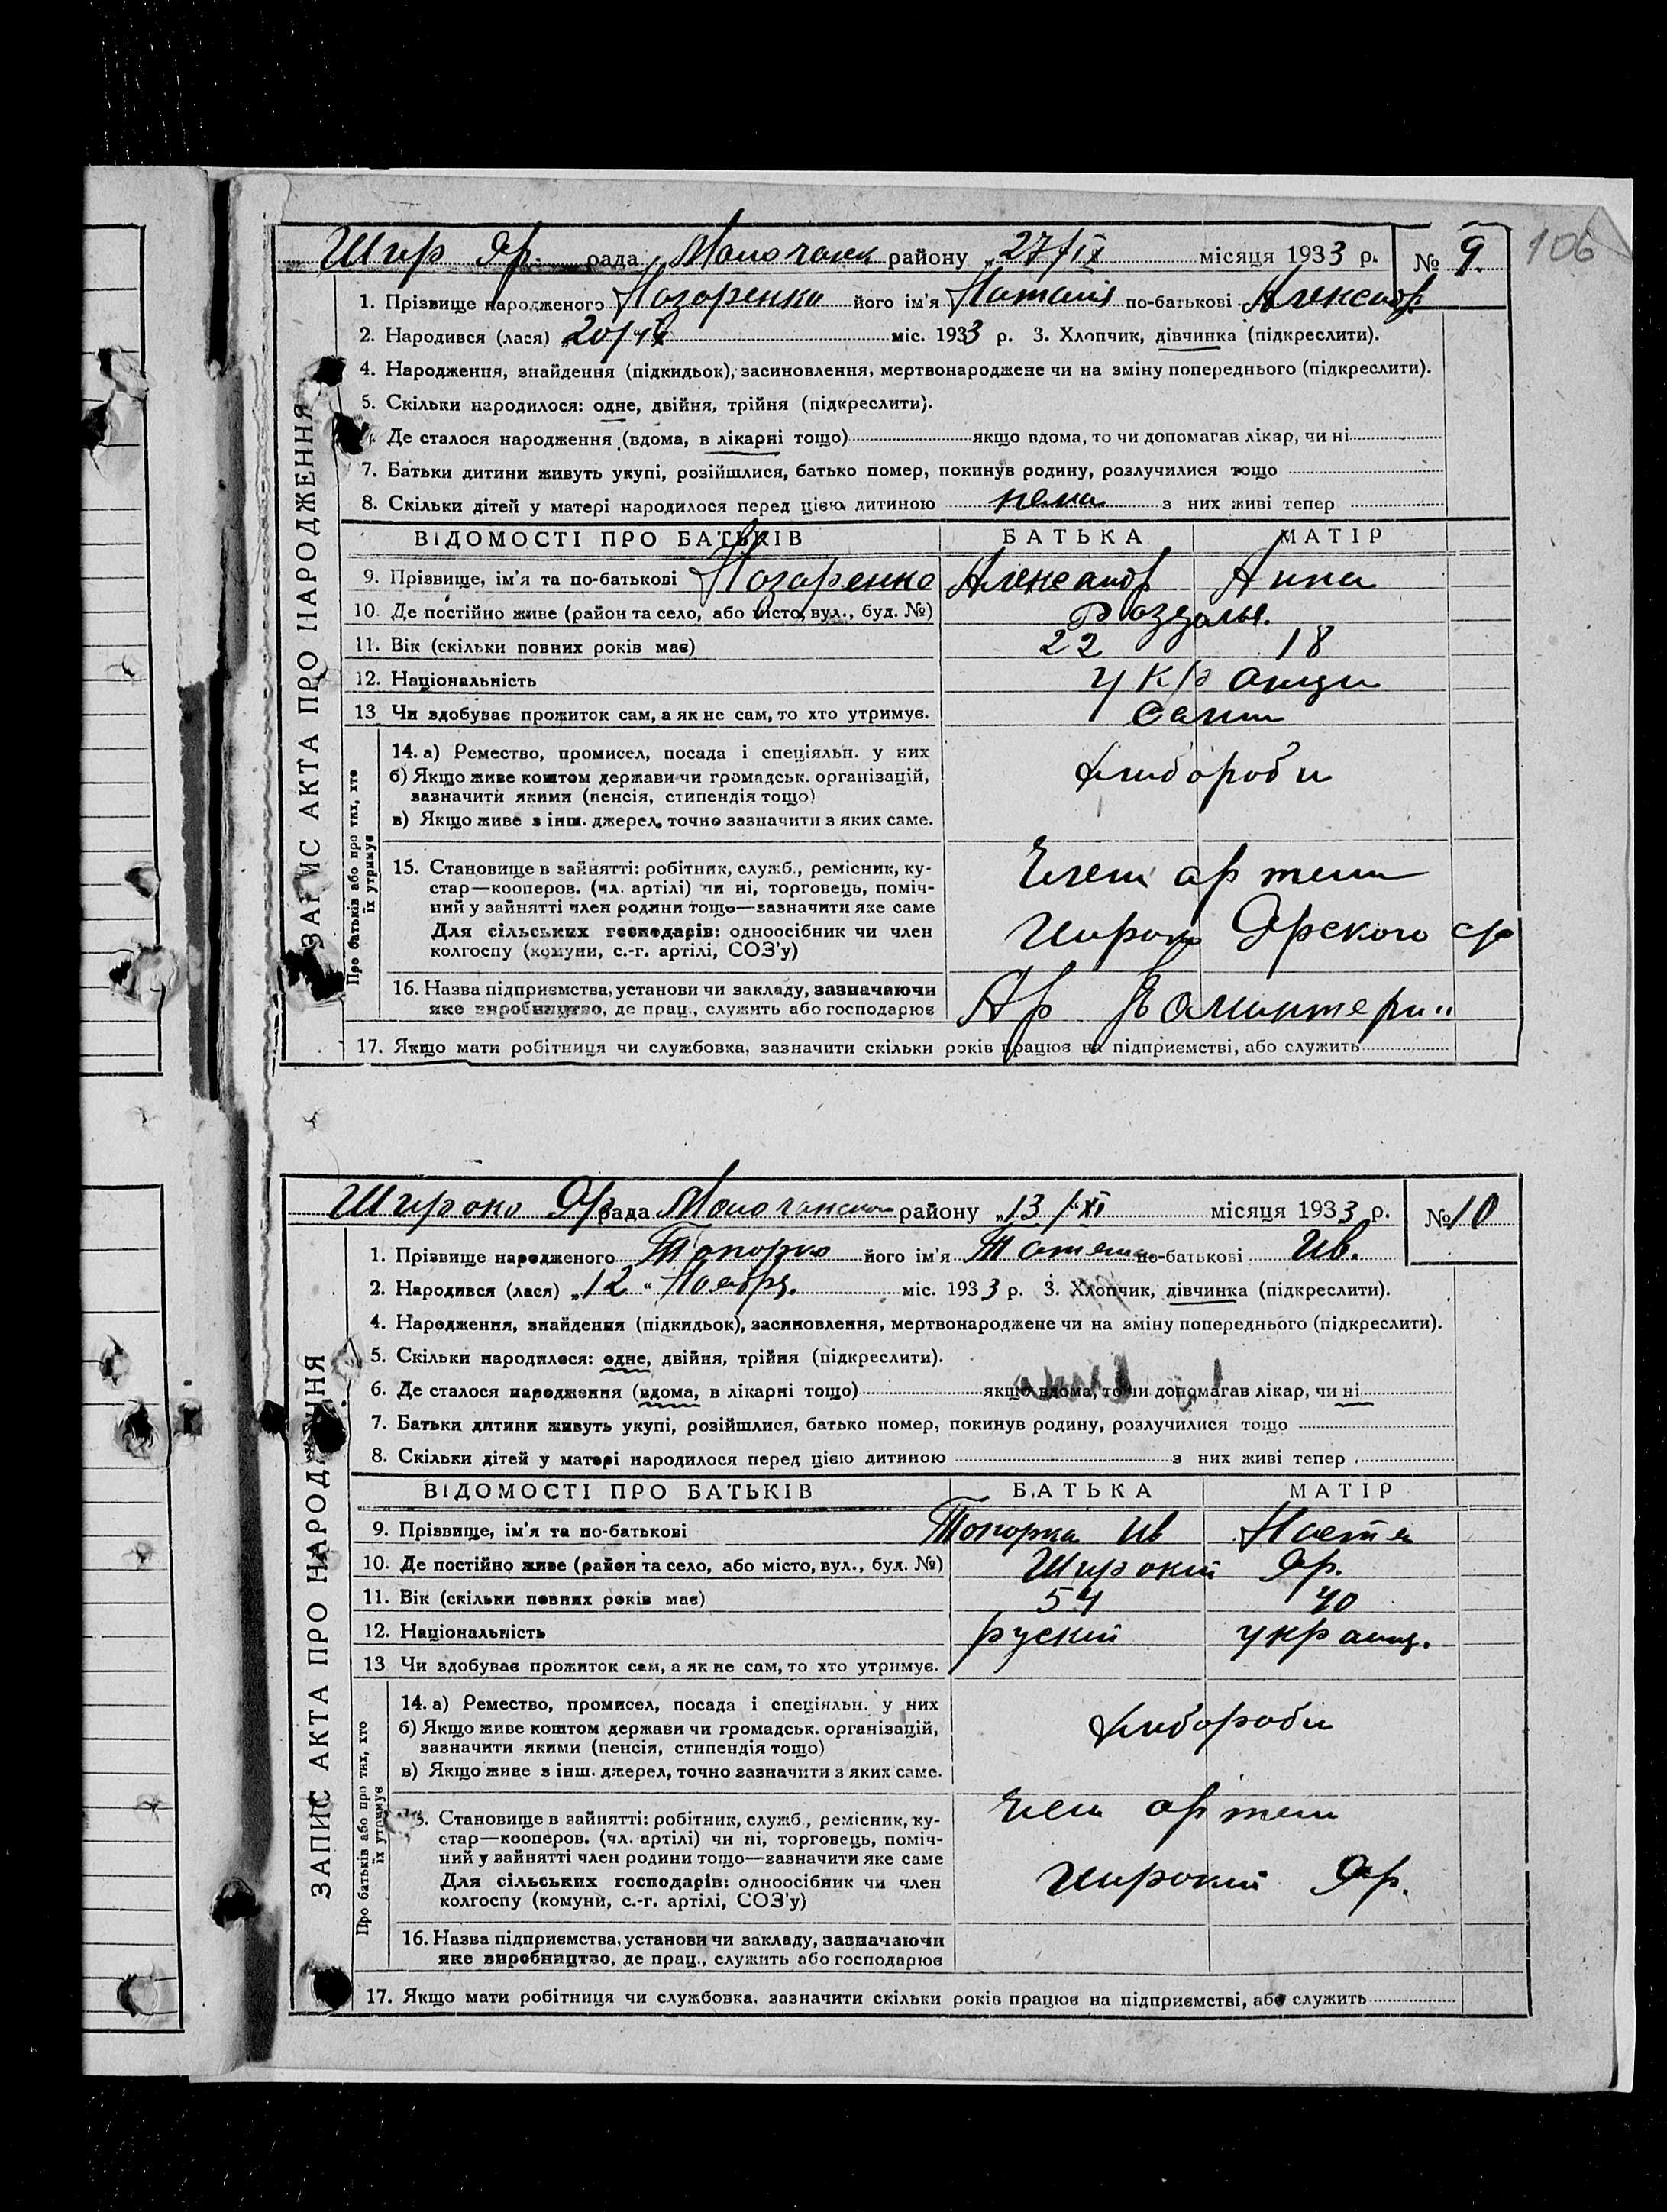 106
Шир Яр. рада Молочанск району „27/IX місяця 1933 р. № 9.
ЗАПИС АКТА ПРО НАРОДЖЕННЯ
1. Прізвище народженого Назаренко його ім'я Наталія по-батькові Александр.
2. Народився (лася) „20/IX міс. 1933 р. 3. Хлопчик, дівчинка (підкреслити).
4. Народження, знайдення (підкидьок), засиновлення, мертвонароджене чи на зміну попереднього (підкреслити).
5. Скільки народилося: одне, двійня, трійня (підкреслити).
Де сталося народження (вдома, в лікарні тощо) якщо вдома, то чи допомагав лікар, чи ні
7. Батьки дитини живуть укупі, розійшлися, батько помер, покинув родину, розлучилися тощо
8. Скільки дітей у матері народилося перед цією дитиною нема з них живі тепер
ВІДОМОСТІ ПРО БАТЬКІВ БАТЬКА МАТІР
9. Прізвище, ім'я та по-батькові Назаренко Александр Анна
10. Де постійно живе (район та село, або місто, вул., буд. №) Роздолье.
11. Вік (скільки повних років має) 22 18
12. Національність Украинци
13 Чи здобуває прожиток сам, а як не сам, то хто утримує. сами
Про батьків або про тих, хто їх утримує
14. а) Ремество, промисел, посада і спеціяльн. у них
б) Якщо живе коштом держави чи громадськ. організацій,
зазначити якими (пенсія, стипендія тощо)
хлибороби
в) Якщо живе з інш. джерел, точно зазначити з яких саме.
15. Становище в зайнятті: робітник, служб., ремісник, ку-
стар—кооперов. (чл. артілі) чи ні, торговець, поміч-
ний у зайнятті член родини тощо—зазначити яке саме
Для сільських господарів: одноосібник чи член
колгоспу (комуни, с.-г. артілі, СОЗ'у)
Член артели
Широко Ярского с/р
16. Назва підприємства, установи чи закладу, зазначаючи
яке виробництво, де прац., служить або господарює
Ар Коминтерн"
17. Якщо мати робітниця чи службовка, зазначити скільки років працює на підприємстві, або служить
Широко Яр рада Молочанского району „13/"XI місяця 1933 р. № 10
ЗАПИС АКТА ПРО НАРОДЖЕННЯ
1. Прізвище народженого його ім'я по-батькові Ив.
2. Народився (лася) „12" Ноября. міс. 1933 р. 3. Хлопчик, дівчинка (підкреслити).
4. Народження, знайдення (підкидьок), засиновлення, мертвонароджене чи на зміну попереднього (підкреслити).
5. Скільки народилося: одне, двійня, трійня (підкреслити).
6. Де сталося народження (вдома, в лікарні тощо) якщо вдома, то чи допомагав лікар, чи ні
7. Батьки дитини живуть укупі, розійшлися, батько помер, покинув родину, розлучилися тощо
8. Скільки дітей у матері народилося перед цією дитиною з них живі тепер
ВІДОМОСТІ ПРО БАТЬКІВ БАТЬКА МАТІР
9. Прізвище, ім'я та по-батькові Ив Настя
10. Де постійно живе (район та село, або місто, вул., буд. №) Широкий Яр.
11. Вік (скільки повних років має) 54 40
12. Національність руский украинц.
13 Чи здобуває прожиток сам, а як не сам, то хто утримує.
Про батьків або про тих, хто їх утримує
14. а) Ремество, промисел, посада і спеціяльн. у них
б) Якщо живе коштом держави чи громадськ. організацій,
зазначити якими (пенсія, стипендія тощо)
хлибороби
в) Якщо живе з інш. джерел, точно зазначити з яких саме.
Становище в зайнятті: робітник, служб., ремісник, ку-
стар—кооперов. (чл. артілі) чи ні, торговець, поміч-
ний у зайнятті член родини тощо—зазначити яке саме
Для сільських господарів: одноосібник чи член
колгоспу (комуни, с.-г. артілі, СОЗ'у)
Член артели
Широкий Яр.
16. Назва підприємства, установи чи закладу, зазначаючи
яке виробництво, де прац., служить або господарює
17. Якщо мати робітниця чи службовка, зазначити скільки років працює на підприємстві, або служить